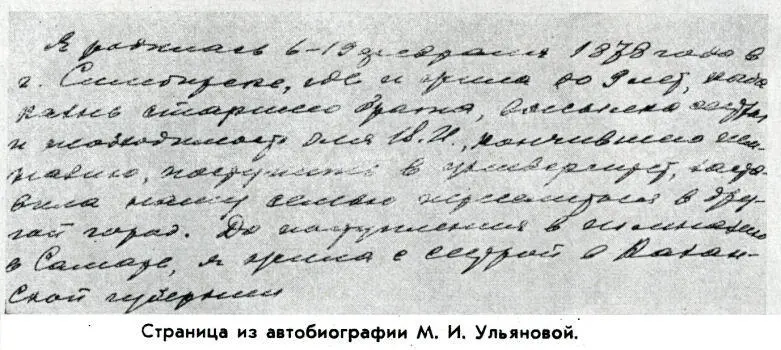 Я родилась 6–19 февраля 1878 года в
г. Симбирске, где и жила до 9 лет, когда
казнь старшего брата, высылка сестры
и необходимость для В.И., кончившего гим-
назию, поступить в университет, заста-
вила нашу семью переселиться в дру-
гой город. До поступления в гимназию
в Самаре, я жила с сестрой в Казан-
ской губернии
Страница из автобиографии М. И. Ульяновой.